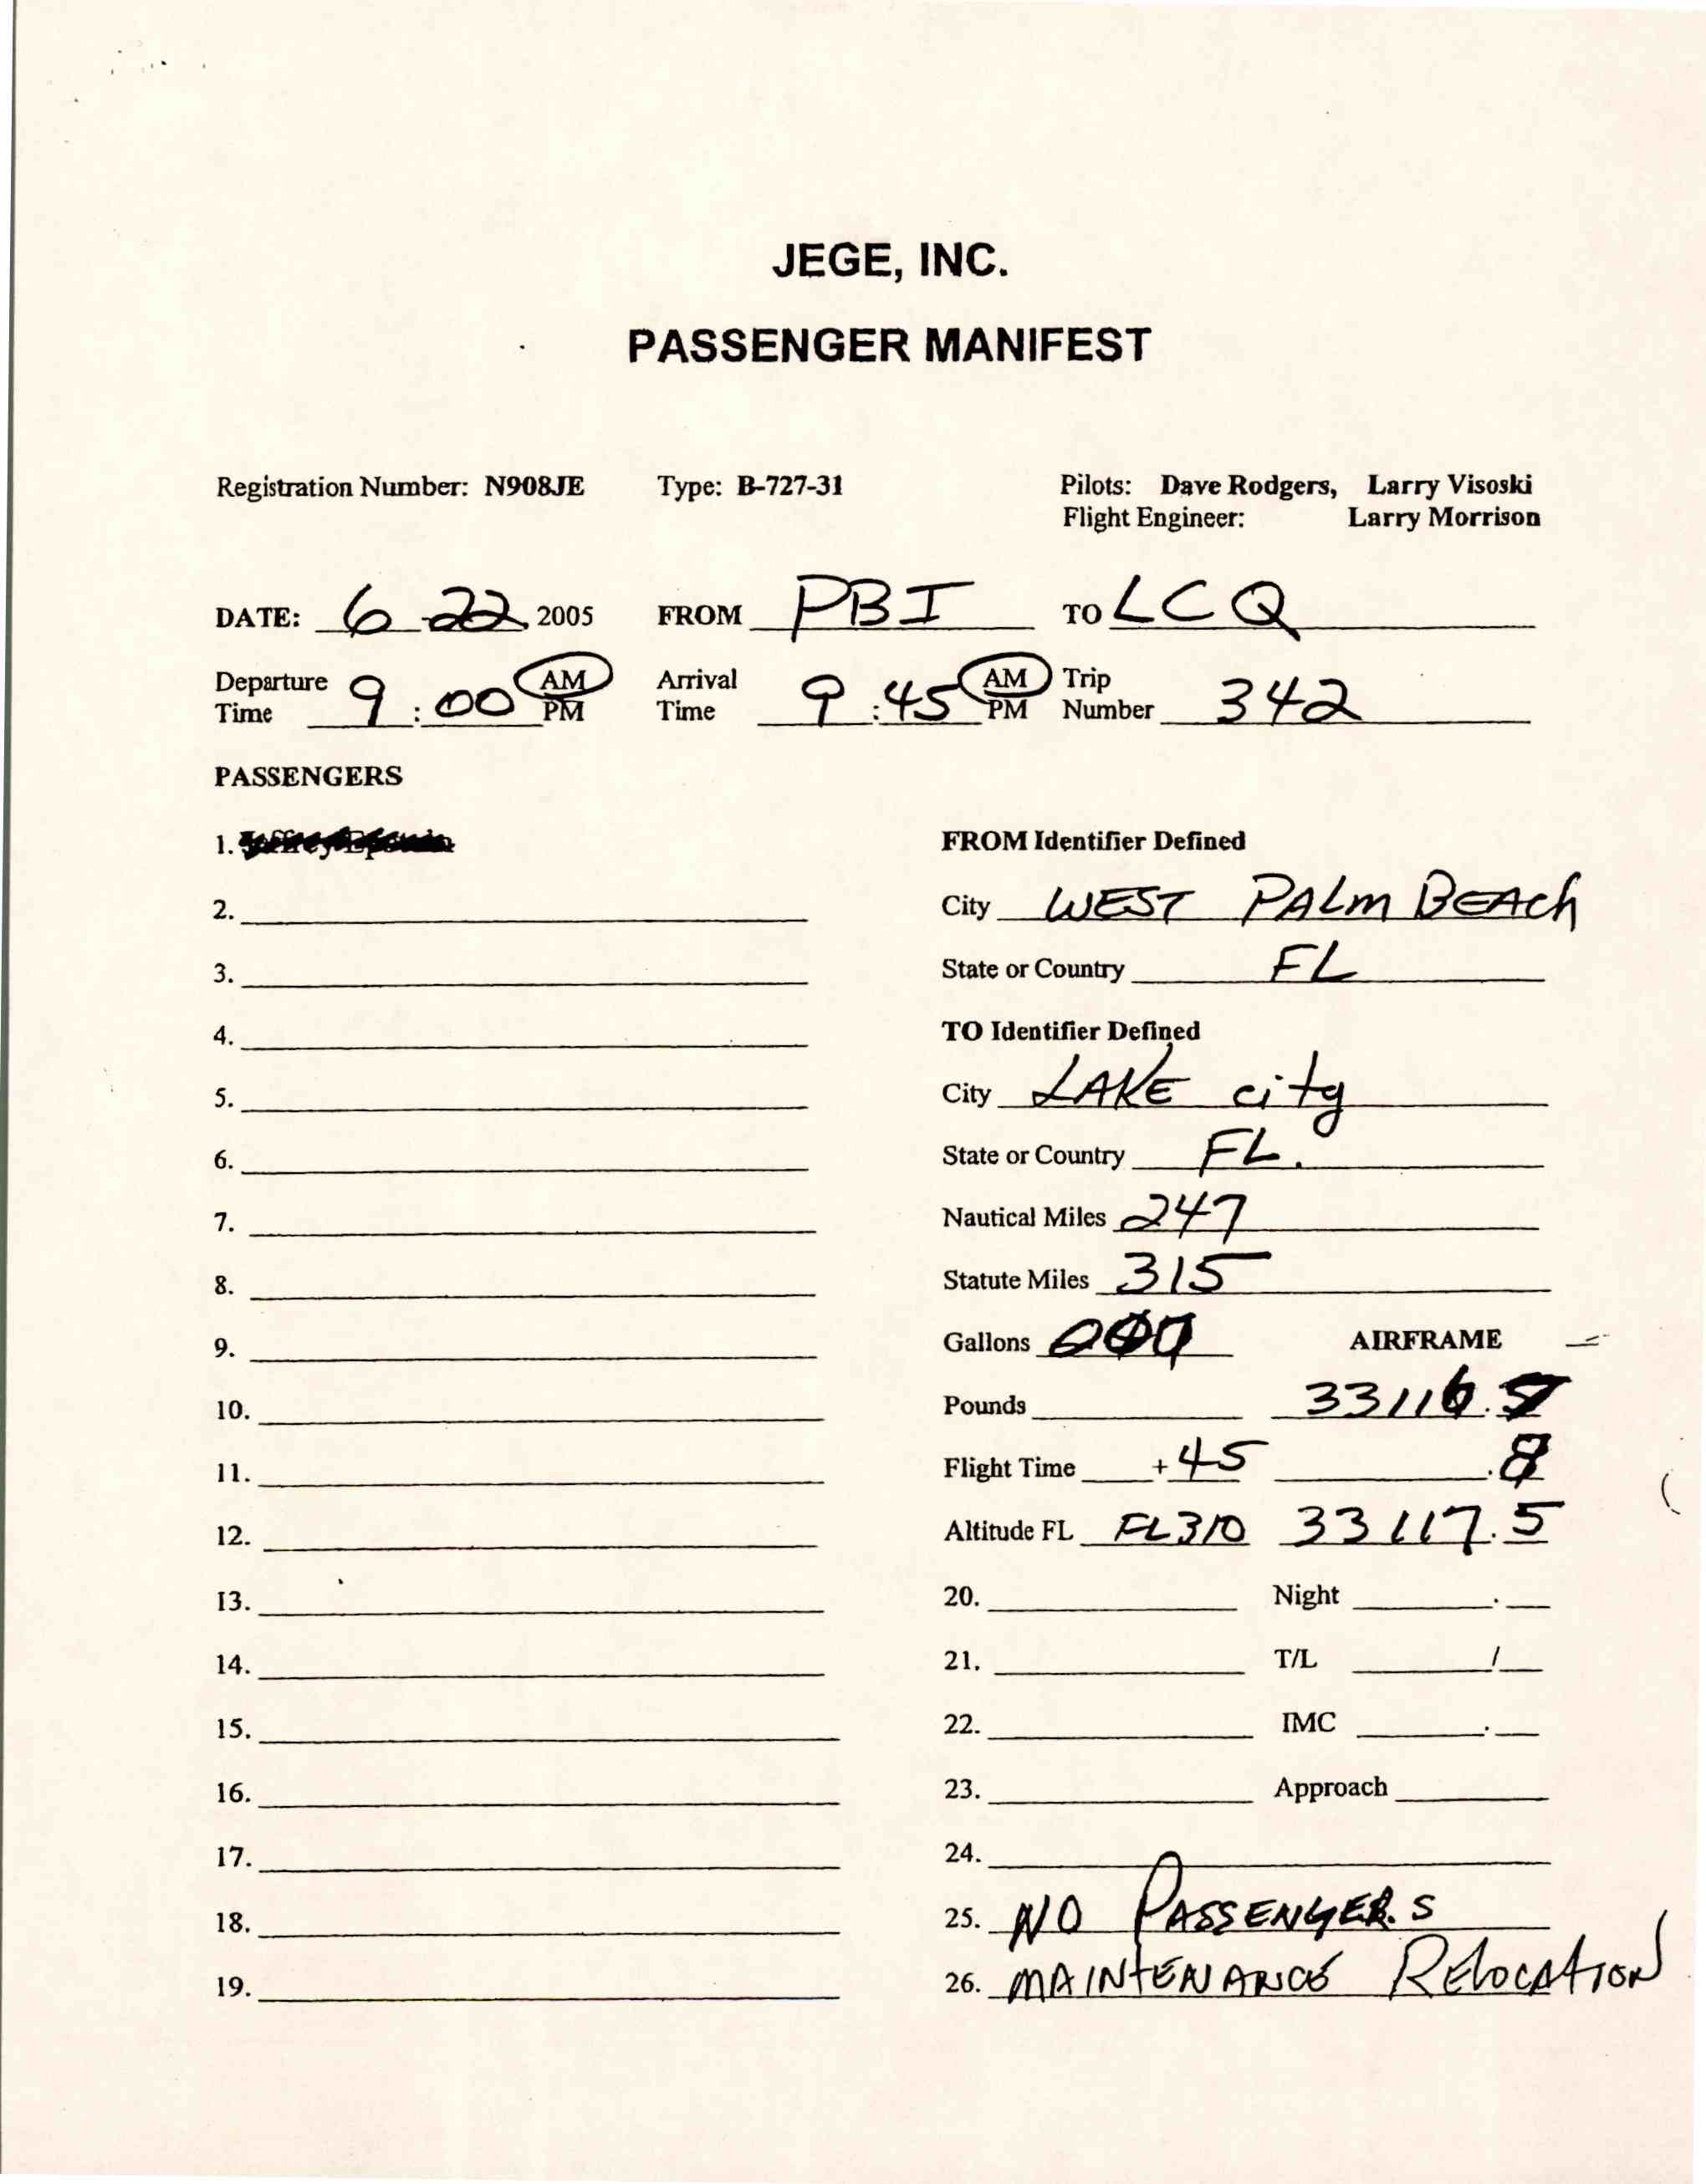 JEGE, INC.
PASSENGER MANIFEST
Registration Number: N908JE Type: B-727-31 Pilots: Dave Rodgers, Larry Visoski
Flight Engineer: Larry Morrison
DATE: 6-22, 2005 FROM PBI TO LCQ
Departure Time 9:00 AM PM Arrival Time 9:45 AM PM Trip Number 342
PASSENGERS
1. FROM Identifier Defined
2. City WEST PALM BEACh
3. State or Country FL
4. TO Identifier Defined
5. City LAKE city
6. State or Country FL.
7. Nautical Miles 247
8. Statute Miles 315
9. Gallons AIRFRAME
10. Pounds 33116.
11. Flight Time +45 .8
12. Altitude FL FL310 33117.5
13. 20. Night .
14. 21. T/L /
15. 22. IMC .
16. 23. Approach
17. 24.
18. 25. NO PASSENGERS
19. 26. MAINtENANCE RELOCAtION